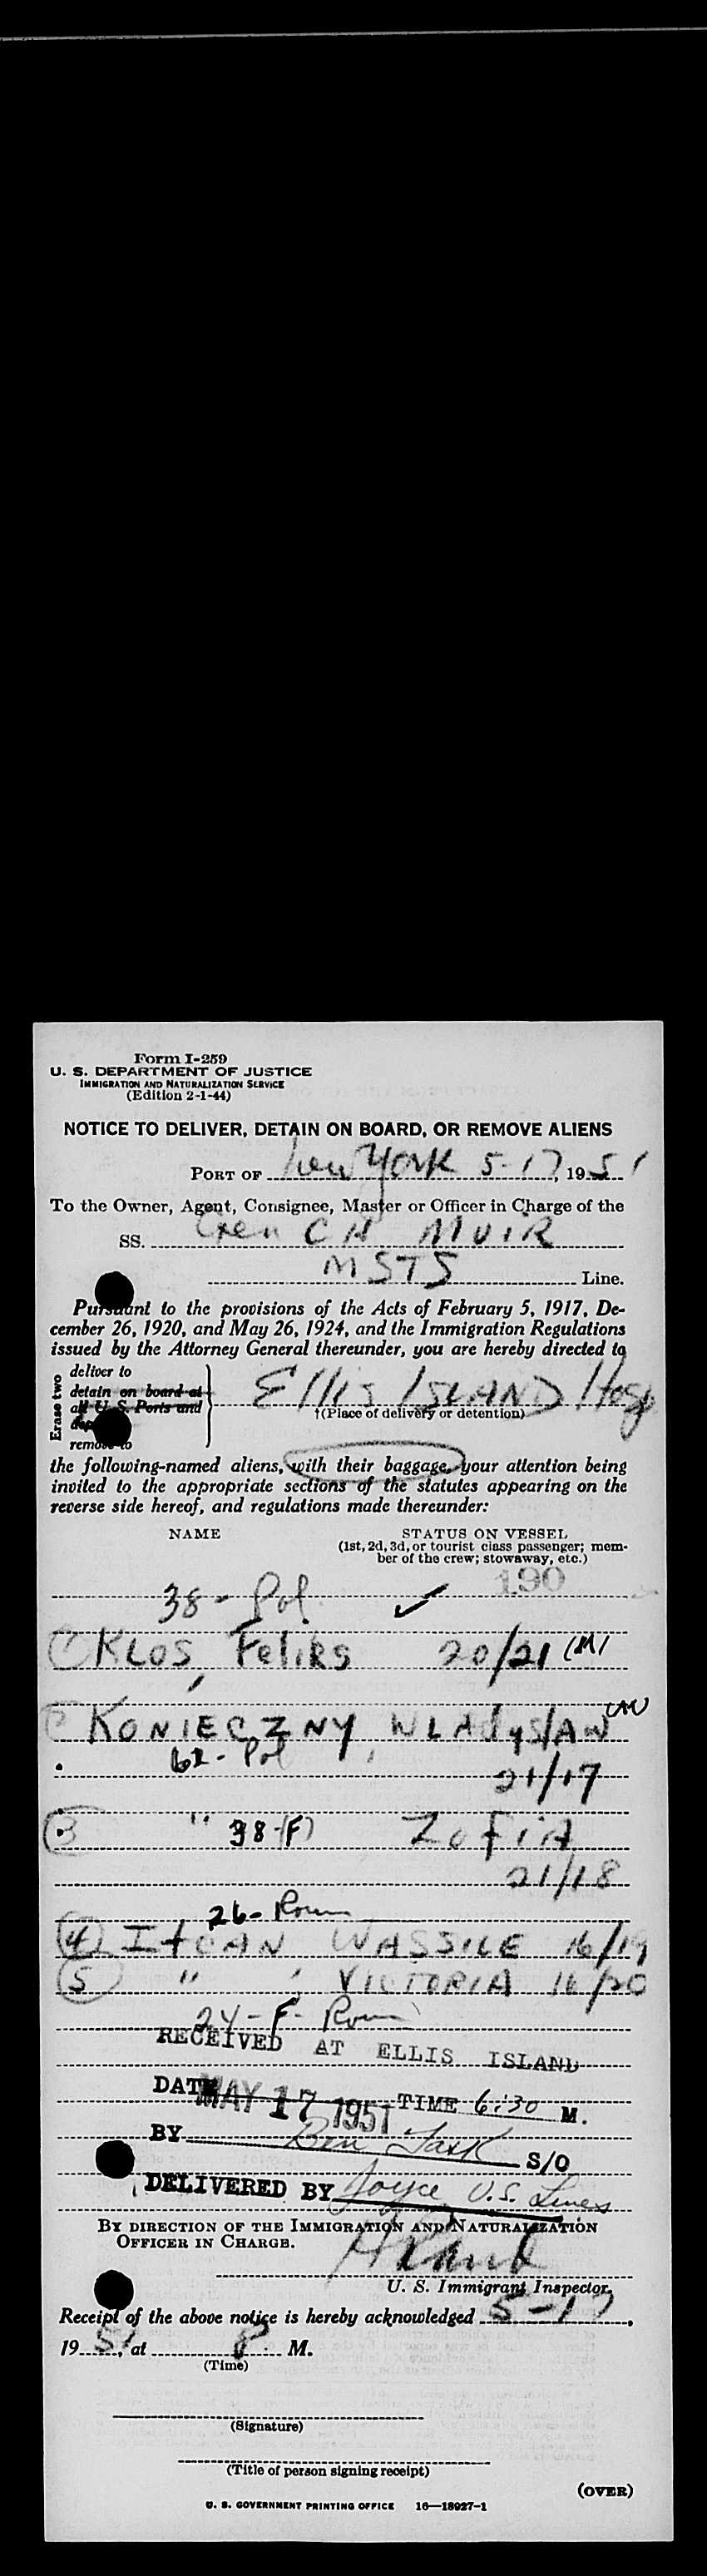 Form I-259
U. S. DEPARTMENT OF JUSTICE
IMMIGRATION AND NATURALIZATION SERVICE
(Edition 2-1-44)
NOTICE TO DELIVER, DETAIN ON BOARD, OR REMOVE ALIENS
PORT OF New York 5-17, 1951
To the Owner, Agent, Consignee, Master or Officer in Charge of the
SS. Gen C H MUIR
MSTS Line.
Pursuant to the provisions of the Acts of February 5, 1917, De-
cember 26, 1920, and May 26, 1924, and the Immigration Regulations
issued by the Attorney General thereunder, you are hereby directed to
Erase two
deliver to
detain on board at
all U. S. Ports and
remove to
Ellis ISLAND Hosp
†(Place of delivery or detention)
the following-named aliens, with their baggage, your attention being
invited to the appropriate sections of the statutes appearing on the
reverse side hereof, and regulations made thereunder:
NAME STATUS ON VESSEL
(1st, 2d, 3d, or tourist class passenger; mem-
ber of the crew; stowaway, etc.)
190
38 - Pol ✓
KLOS, Feliks 20/21 (M)
KONIECZNY, WLADYSLAW (M)
62 - Pol
21/17
3 " 38-(F) ZOFIA
21/18
26 - Roum
4 ITCAN WASSILE 16/19
5 " , VICTORIA 16/20
24 - F - Roum
RECEIVED AT ELLIS ISLAND
DATE MAY 17 1951 TIME 6:30 M.
BY Ben Task S/O
DELIVERED BY Joyce U.S. Lines
BY DIRECTION OF THE IMMIGRATION AND NATURALIZATION
OFFICER IN CHARGE.
U. S. Immigrant Inspector.
Receipt of the above notice is hereby acknowledged 5-17,
1951, at 8 M.
(Time)
(Signature)
(Title of person signing receipt)
(OVER)
U. S. GOVERNMENT PRINTING OFFICE 16—18927-1